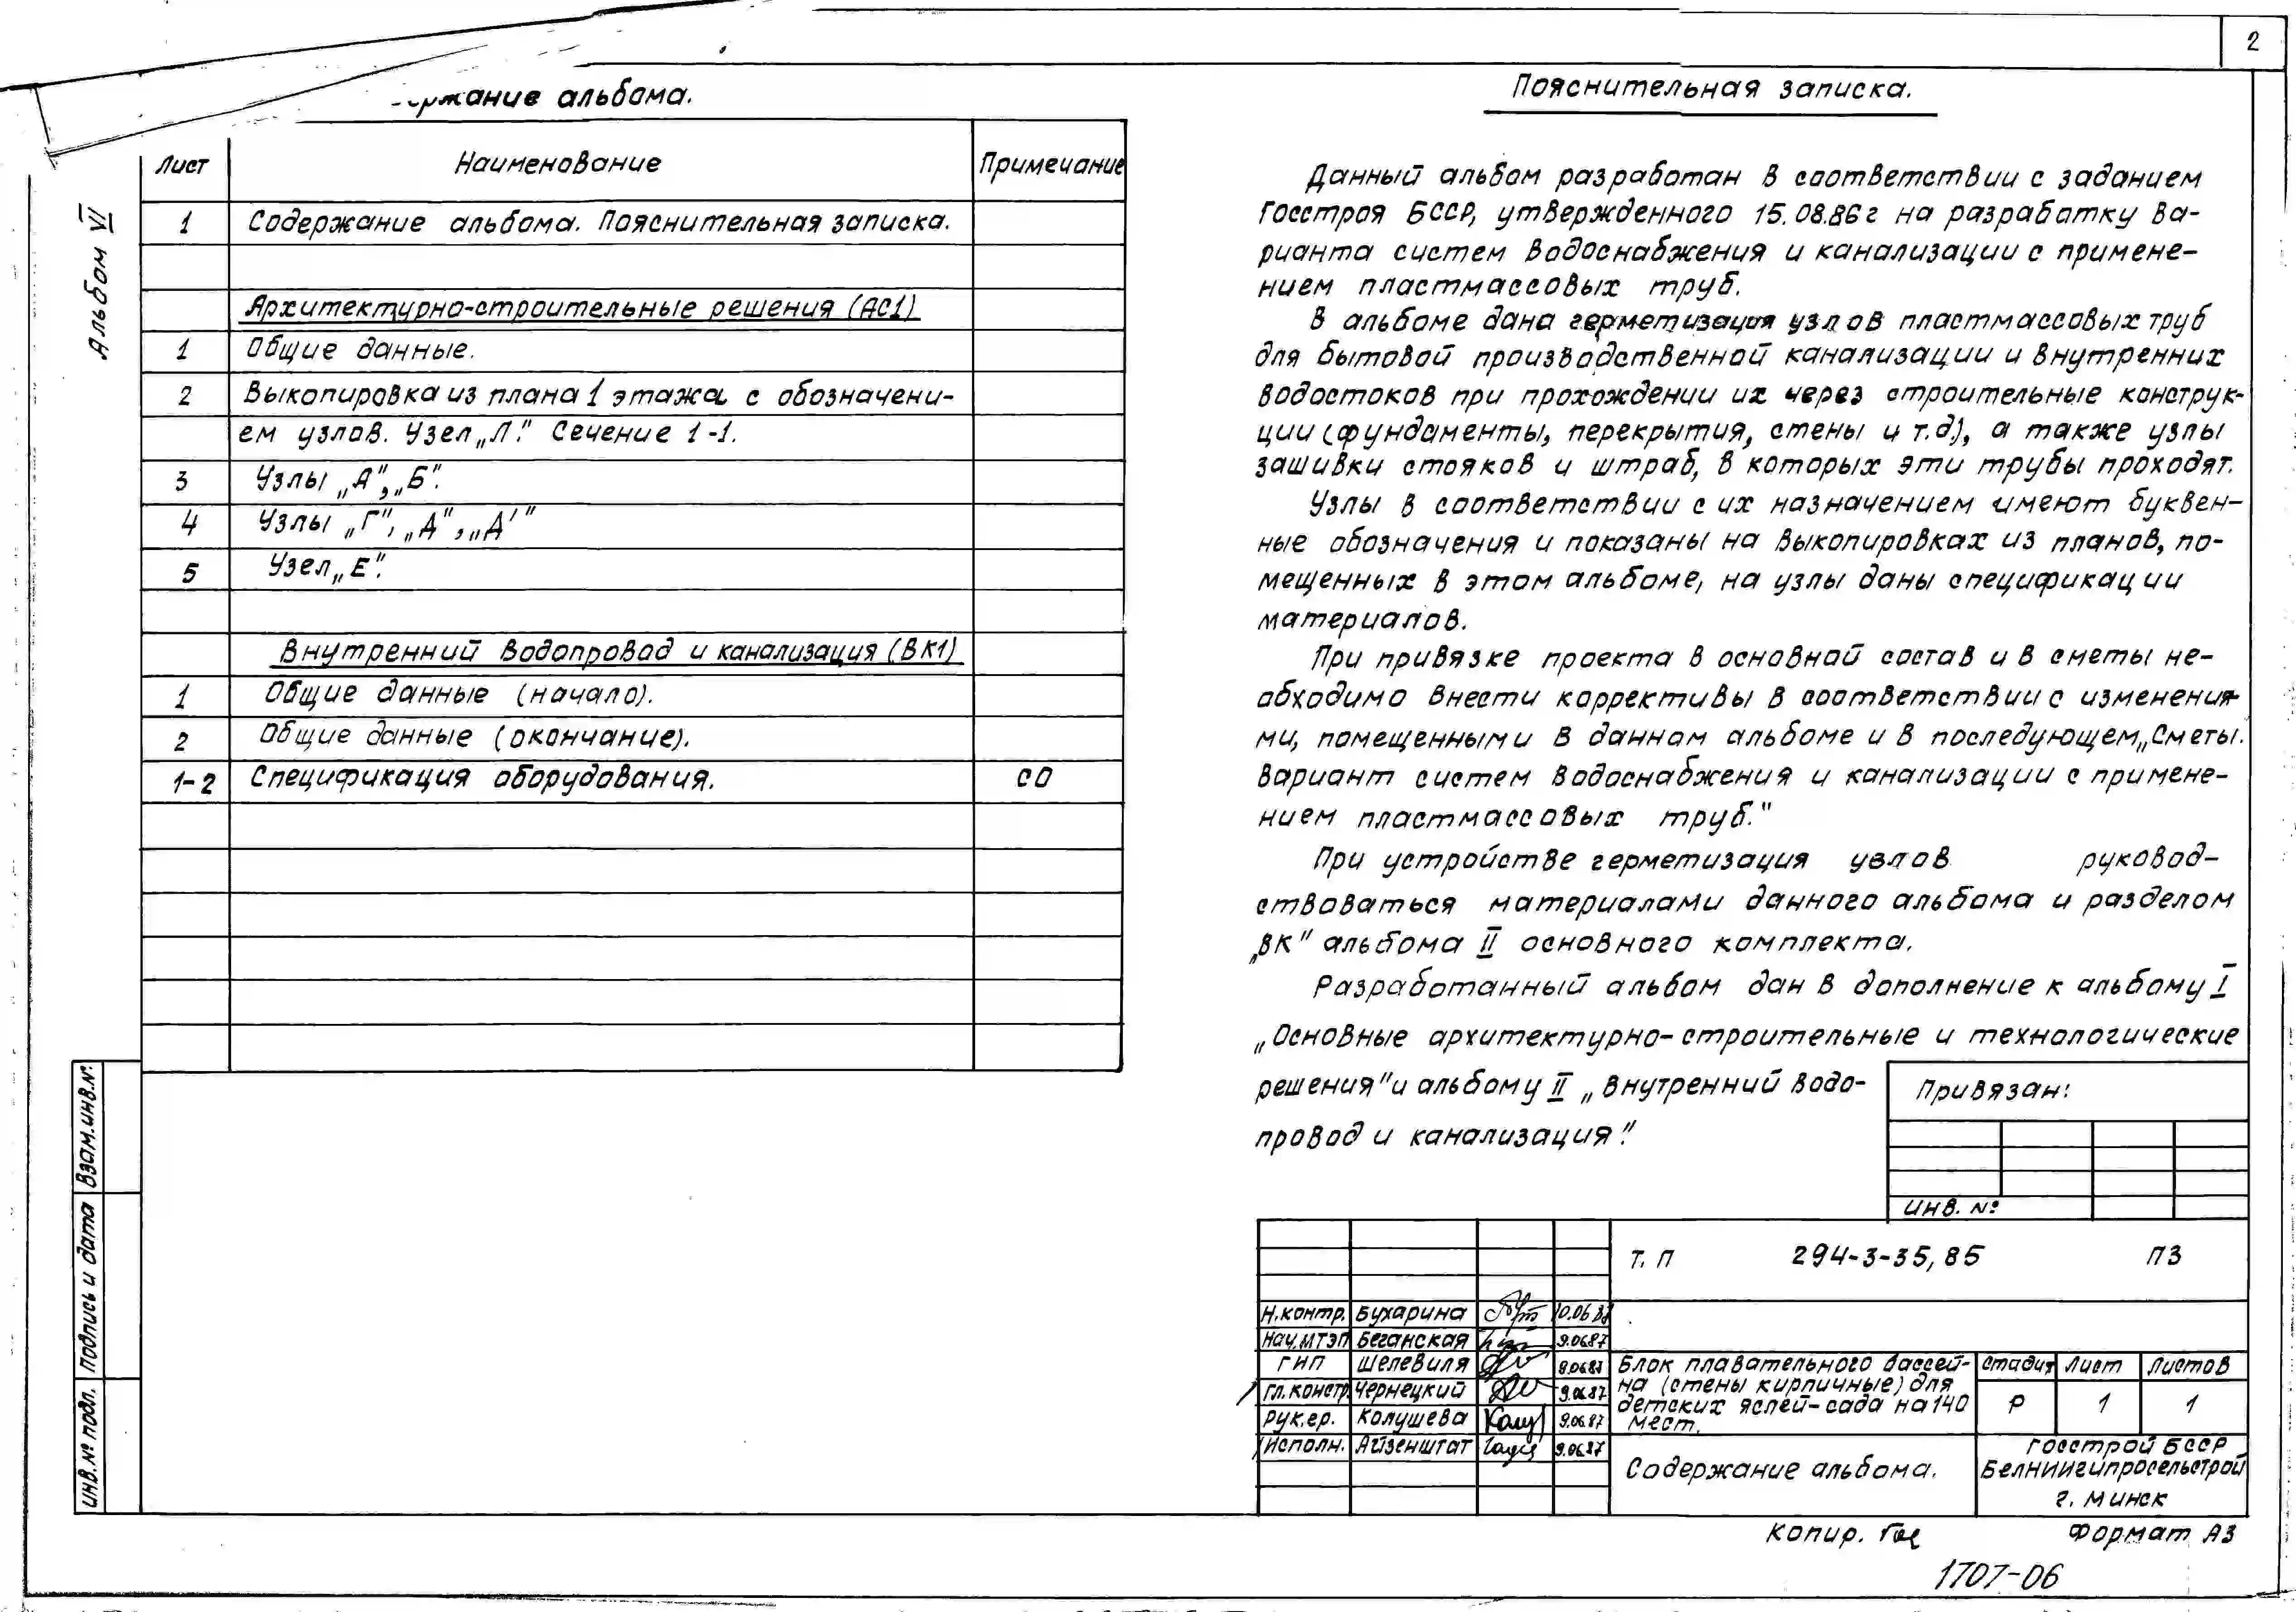 2
альбома.
Альбом VI
Лист Наименование Примечание
1 Содержание альбома. Пояснительная записка.
Архитектурно-строительные решения (АС1)
1 Общие данные.
2 Выкопировка из плана 1 этажа с обозначени-
ем узлов. Узел „Л". Сечение 1-1.
3 Узлы „А", „Б".
4 Узлы „Г", „Д", „Д'"
5 Узел „Е".
Внутренний водопровод и канализация (ВК1)
1 Общие данные (начало).
2 Общие данные (окончание).
1-2 Спецификация оборудования. СО
Пояснительная записка.
Данный альбом разработан в соответствии с заданием
Госстроя БССР, утвержденного 15.08.86г на разработку ва-
рианта систем водоснабжения и канализации с примене-
нием пластмассовых труб.
В альбоме дана герметизация узлов пластмассовых труб
для бытовой производственной канализации и внутренних
водостоков при прохождении их через строительные конструк-
ции (фундаменты, перекрытия, стены и т.д.), а также узлы
зашивки стояков и штраб, в которых эти трубы проходят.
Узлы в соответствии с их назначением имеют буквен-
ные обозначения и показаны на выкопировках из планов, по-
мещенных в этом альбоме, на узлы даны спецификации
материалов.
При привязке проекта в основной состав и в сметы не-
обходимо внести коррективы в соответствии с изменения-
ми, помещенными в данном альбоме и в последующем „Сметы.
Вариант систем водоснабжения и канализации с примене-
нием пластмассовых труб."
При устройстве герметизация узлов руковод-
ствоваться материалами данного альбома и разделом
„ВК" альбома II основного комплекта.
Разработанный альбом дан в дополнение к альбому I
„Основные архитектурно-строительные и технологические
решения" и альбому II „Внутренний водо-
провод и канализация".
Привязан:
Инв. №
Т.П 294-3-35,85 ПЗ
Н.контр. Бухарина 10.06.87
Нач.МТЭП Беганская 9.06.87
ГИП Шелевиля 9.06.87
Гл.констр. Чернецкий 9.06.87
Рук.гр. Колушева 9.06.87
Исполн. Айзенштат 9.06.87
Блок плавательного бассей-
на (стены кирпичные) для
детских яслей-сада на 140
мест.
Стадия Лист Листов
Р 1 1
Содержание альбома.
Госстрой БССР
БелНИИгипросельстрой
г. Минск
Взам.инв.№
Подпись и дата
Инв.№ подл.
Копир. Формат А3
1707-06